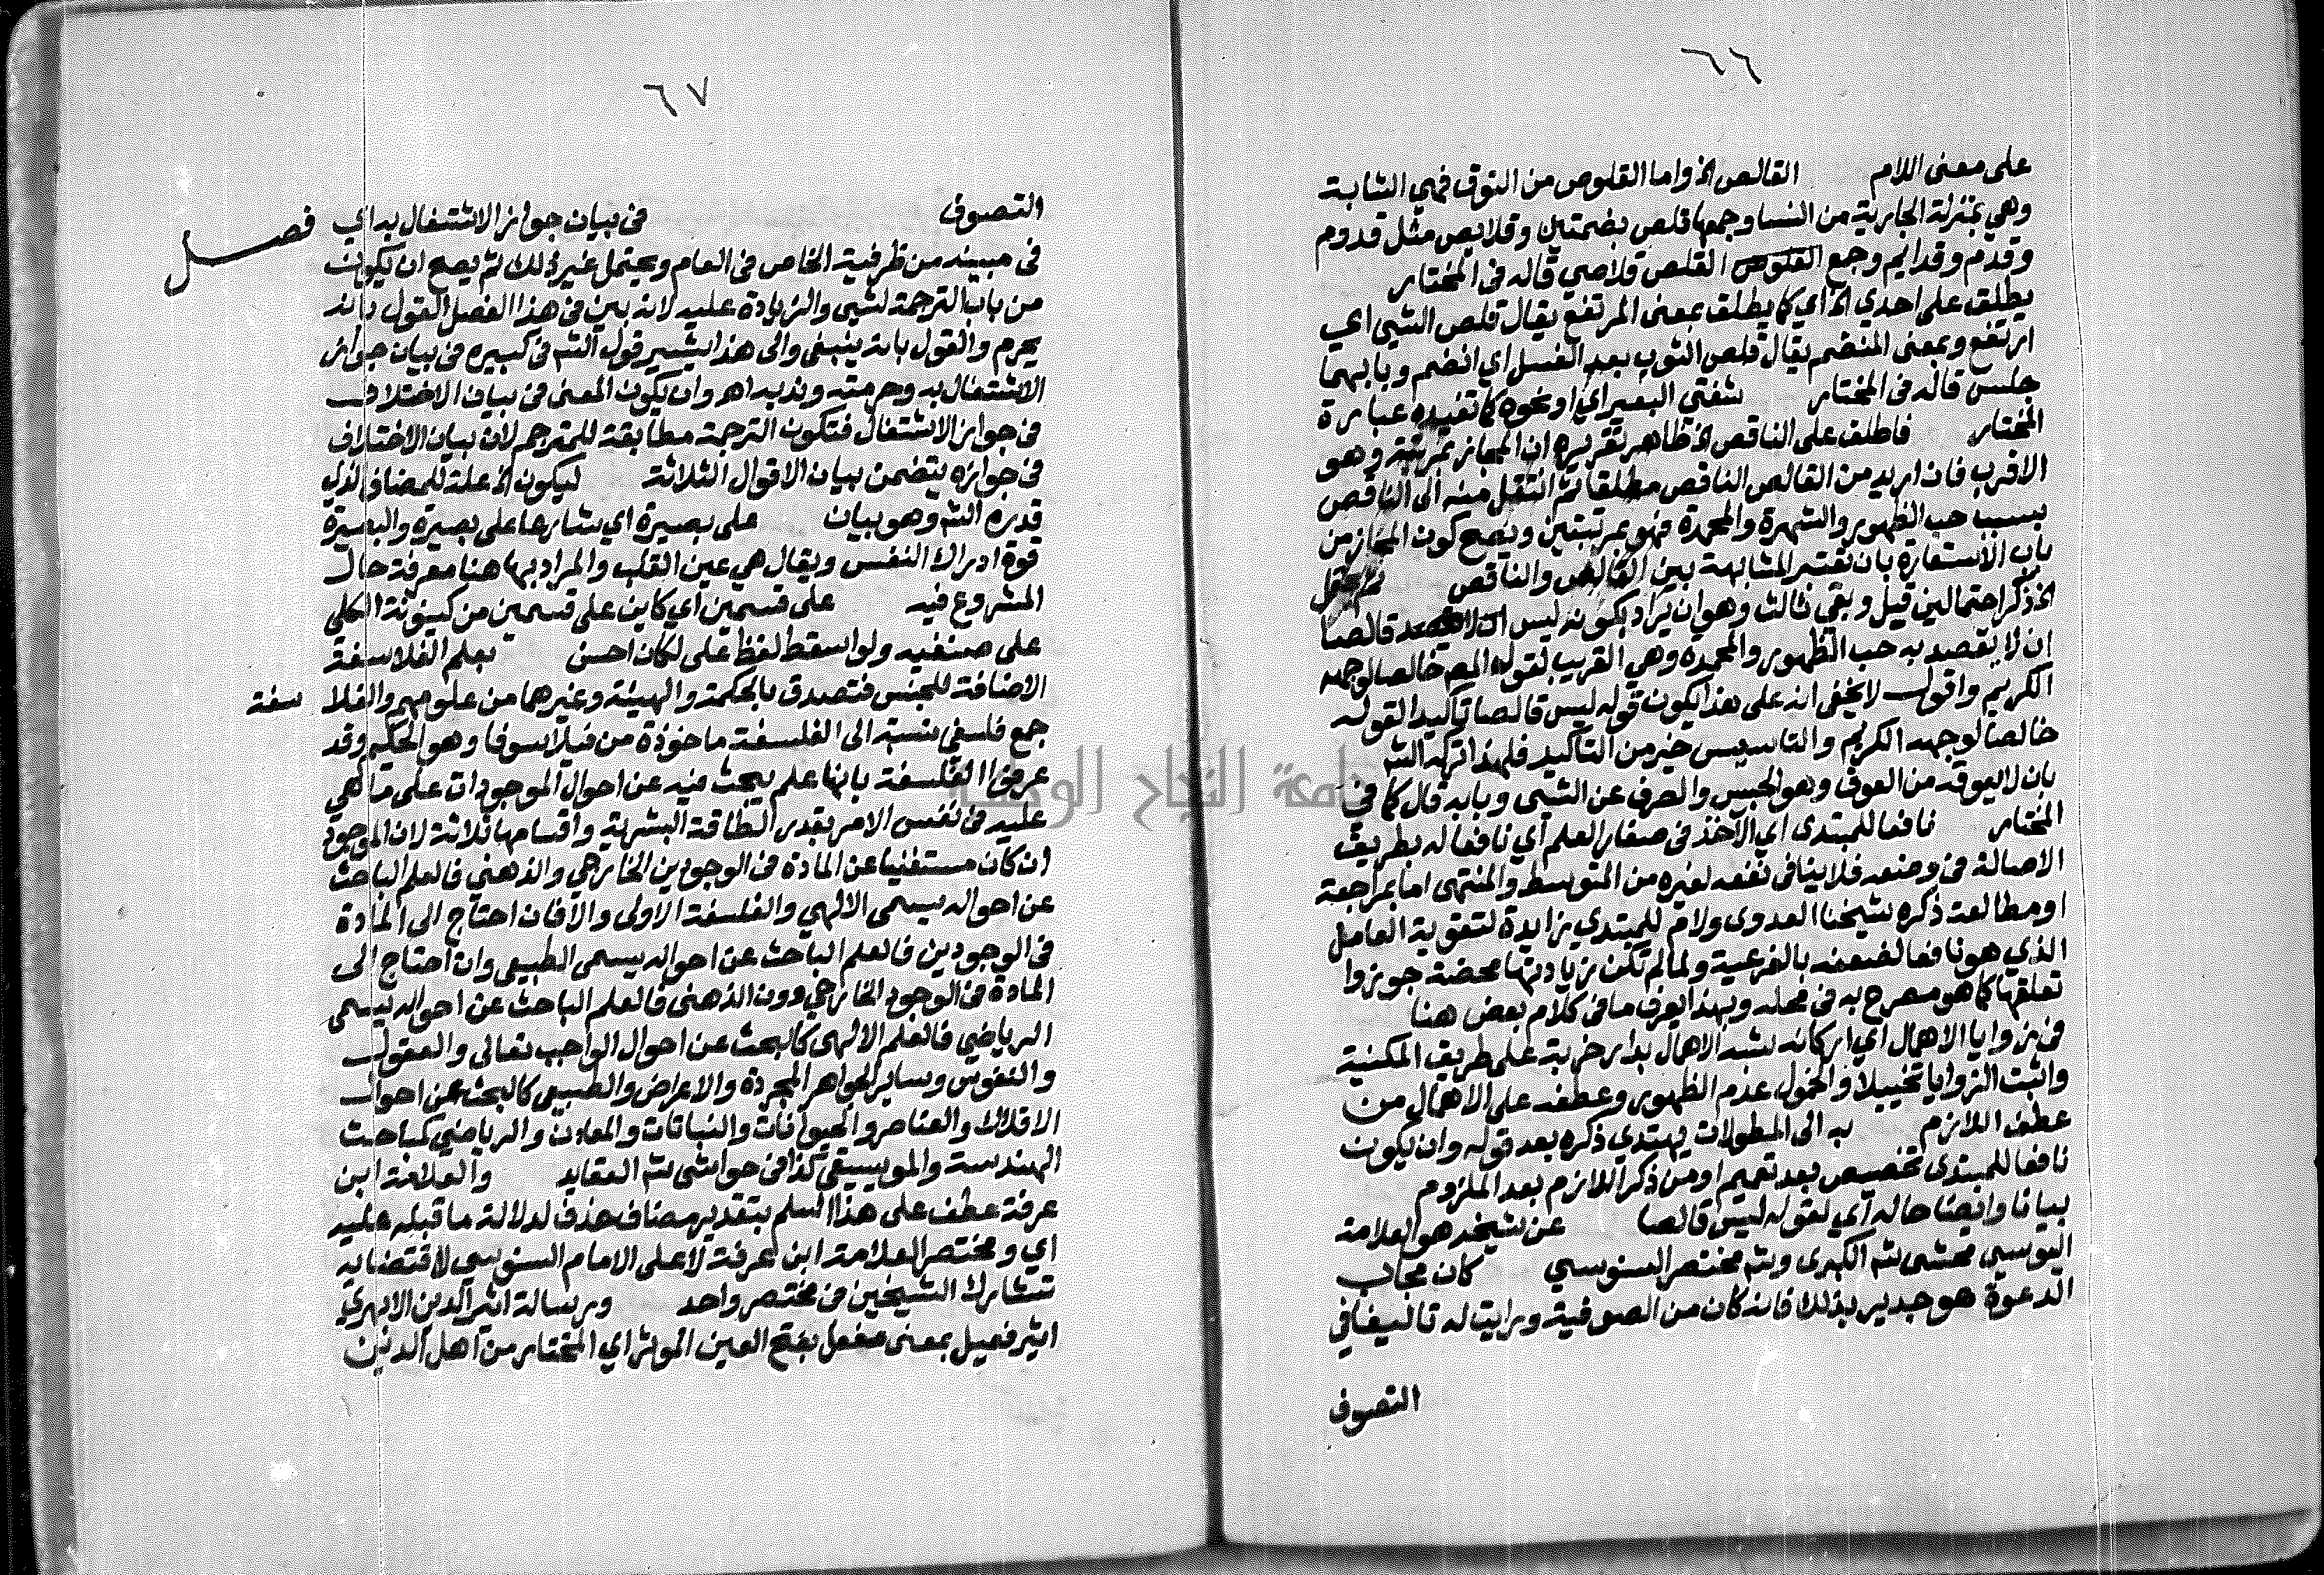 ٦٦
على معنى اللام القالص الخ واما القلوص من النوق فهي الشابة
وهي بمنزلة الجارية من النسا وجمعها قلص بضمتين وقلايص مثل قدوم
وقدم وقدايم وجمع القلوص القلص قلاص قاله في المختار
يطلق على احدي الخ اي كما يطلق بمعنى المرتفع يقال قلص الشي اي
ارتفع وبمعنى المنضم يقال قلص الثوب بعد الغسل اي انضم وبابهما
جلس قاله في المختار شفتي البعير اي او نحوه كما تفيده عبارة
المختار فاطلق على الناقص الخ ظاهر تقريره ان المجاز بمرتبة وهو
الاقرب فان اريد من القالص الناقص مطلقا ثم انتقل منه الى الناقص
بسبب حب الظهور والشهرة والمحمدة فهو بمرتبتين ويصح كون المجاز من
باب الاستعارة بان تعتبر المشابهة بين القالص والناقص
الخ ذكر احتمالين قيل وبقي ثالث وهو ان يراد بكونه ليس قالصا
ان لا يقصد به حب الظهور والمحمدة وهي القريب لقوله المص خالصا لوجهه
الكريم واقول لا يخفى انه على هذا يكون قوله ليس قالصا تاكيدا لقوله
خالصا لوجهه الكريم والتاسيس خير من التاكيد فلهذا تركه الشم
بان لا يعوقه من العوق وهو الحبس والصرف عن الشي وبابه قال كما في
المختار نافعا للمبتدى اي الآخذ في صغار العلم اي نافعا له بطريق
الاصالة في وضعه فلا ينافي نفعه لغيره من المتوسط والمنتهى اما بمراجعة
او مطالعة ذكره شيخنا العدوى ولام للمبتدي زايدة لتقوية العامل
الذي هو نافعا لضعفه بالفرعية ولما لم تكن زيادتها محضة جوزوا
تعلقها كما هو مصرح به في محله وبهذا يعرف ما في كلام بعض هنا
في زوايا الاهمال اي اركانه شبه الاهمال بدار خربة على طريق المكنية
واثبت الزوايا تخييلا والخمول عدم الظهور وعطفه على الاهمال من
عطف اللازم به الى المطولات يهتدي ذكره بعد قوله وان يكون
نافعا للمبتدى تخصيص بعد تعميم او من ذكر اللازم بعد الملزوم
بيانا وايضاحا له اي لقوله ليس قالصا عن شيخه هو العلامة
اليوسي محشى شم الكبرى وشم مختصر السنوسي كان مجاب
الدعوة هو جدير بذلك فانه كان من الصوفية ورايت له تاليفا في
التصوف
٦٧
التصوف في بيان جواز الاشتغال به اي
فصل
في مبينه من ظرفية الخاص في العام ويحتمل غير ذلك ثم يصح ان يكون
من باب الترجمة لشي والزيادة عليه لانه بين في هذا الفصل القول بانه
يحرم والقول بانه ينبغي والى هذا يشير قول الشم في كبيره في بيان جواز
الاشتغال به وحرمته وندبه اهـ وان يكون المعنى في بيان الاختلاف
في جواز الاشتغال فتكون الترجمة مطابقة للمترجم لان بيان الاختلاف
في جوازه يتضمن بيان الاقوال الثلاثة ليكون الخ علة للمضاف الذي
قدره الشم وهو بيان على بصيرة اي شارعا على بصيرة والبصيرة
قوة ادراك النفس ويقال هي عين القلب والمراد بها هنا معرفة حال
المشروع فيه على قسمين اي كاين على قسمين من كينونة الكلي
على صنفيه ولو اسقط لفظ على لكان احسن بعلم الفلاسفة
الاضافة للجنس فتصدق بالحكمة والهيئة وغيرهما من علومهم والفلا سفة
جمع فلسفي نسبة الى الفلسفة ماخوذة من فيلاسوفا وهو الحكيم وقد
عرفوا الفلسفة بانها علم يبحث فيه عن احوال الموجودات على ما هي
عليه في نفس الامر بقدر الطاقة البشرية واقسامها ثلاثة لان الموجود
ان كان مستغنيا عن المادة في الوجودين الخارجي والذهني فالعلم الباحث
عن احواله يسمى الالهي والفلسفة الاولى والا فان احتاج الى المادة
في الوجودين فالعلم الباحث عن احواله يسمى الطبيعي وان احتاج الى
المادة في الوجود الخارجي دون الذهني فالعلم الباحث عن احواله يسمى
الرياضي فالعلم الالهي كالبحث عن احوال الواجب تعالى والعقول
والنفوس وساير الجواهر المجردة والاعراض والطبيعي كالبحث عن احوال
الافلاك والعناصر والحيوانات والنباتات والمعادن والرياضي كمباحث
الهندسة والموسيقي كذا في حواشى شم العقايد والعلامة ابن
عرفة عطف على هذا السلم بتقدير مضاف حذف لدلالة ما قبله عليه
اي ومختصر العلامة ابن عرفة لا على الامام السنوسي لاقتضايه
تشارك الشيخين في مختصر واحد ورسالة اثير الدين الابهري
اثير فعيل بمعنى مفعل بفتح العين الموثر اي المختار من اهل الدين
جامعة النجاح الوطنية